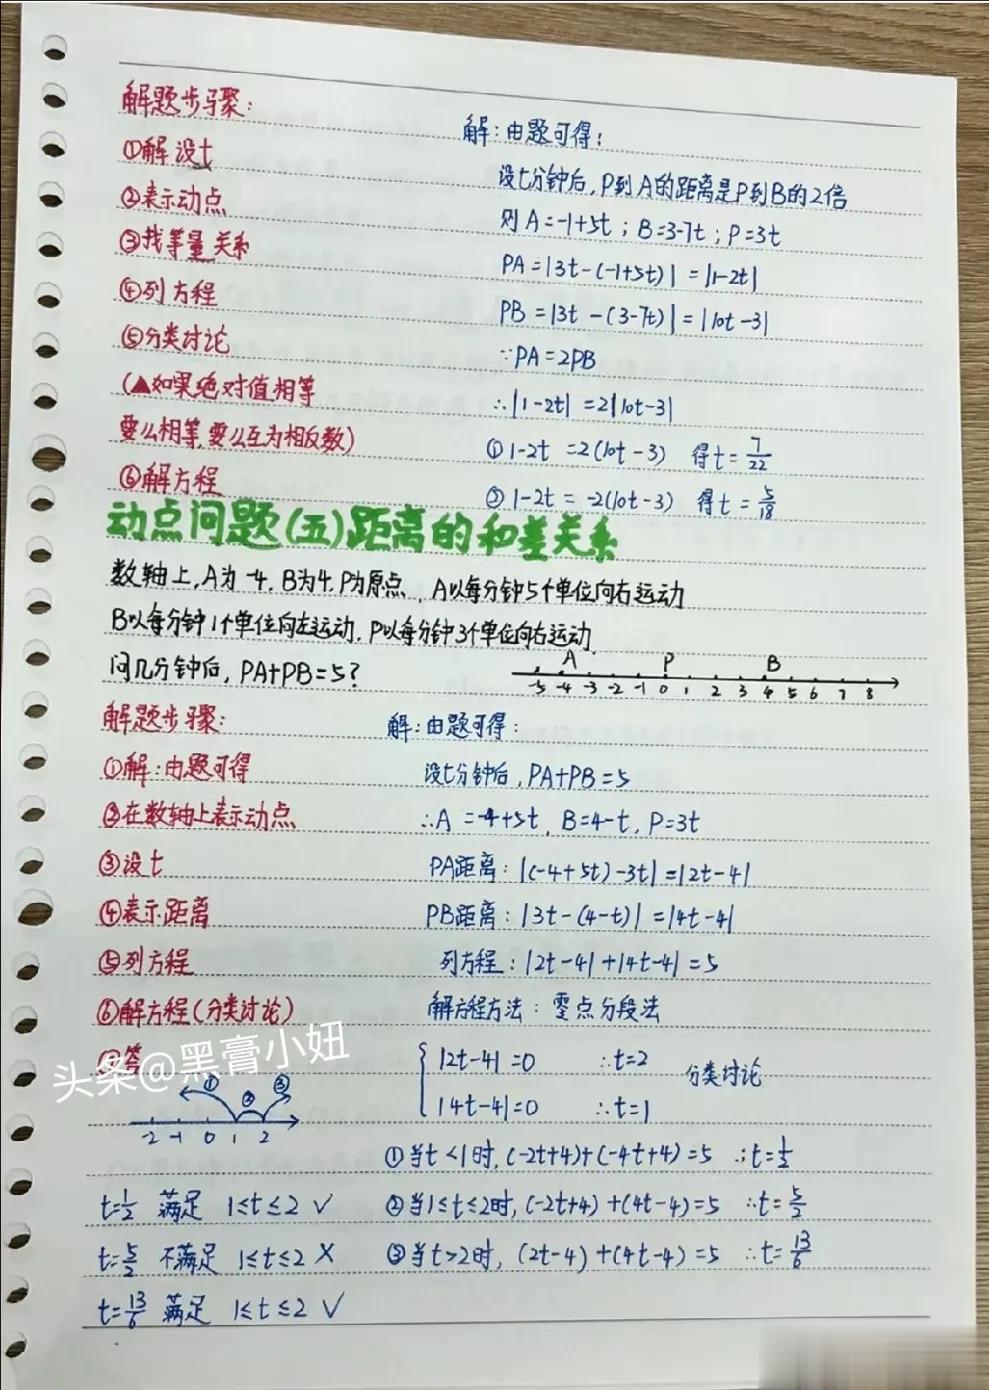 解题步骤:
①解设t
②表示动点
③找等量关系
④列方程
⑤分类讨论
(▲如果绝对值相等
要么相等,要么互为相反数)
⑥解方程
解:由题可得:
设t分钟后,P到A的距离是P到B的2倍
则A=-1+5t;B=3-7t;P=3t
PA=|3t-(-1+5t)|=|1-2t|
PB=|3t-(3-7t)|=|10t-3|
∵PA=2PB
∴|1-2t|=2|10t-3|
① 1-2t=2(10t-3) 得t=7/22
② 1-2t=-2(10t-3) 得t=5/18
动点问题(五)距离的和差关系
数轴上,A为-4,B为4,P为原点,A以每分钟5个单位向右运动
B以每分钟1个单位向左运动,P以每分钟3个单位向右运动
问几分钟后,PA+PB=5?
A P B
-5 -4 -3 -2 -1 0 1 2 3 4 5 6 7 8
解题步骤:
①解:由题可得
②在数轴上表示动点
③设t
④表示距离
⑤列方程
⑥解方程(分类讨论)
⑦答
头条@黑膏小妞
① ② ③
-2 -1 0 1 2
t=1/2 满足 1≤t≤2 √
t=5/2 不满足 1≤t≤2 X
t=13/6 满足 1≤t≤2 √
解:由题可得:
设t分钟后,PA+PB=5
∴A=-4+5t,B=4-t,P=3t
PA距离:|(-4+5t)-3t|=|2t-4|
PB距离:|3t-(4-t)|=|4t-4|
列方程:|2t-4|+|4t-4|=5
解方程方法:零点分段法
|2t-4|=0 ∴t=2
|4t-4|=0 ∴t=1
分类讨论
①当t<1时,(-2t+4)+(-4t+4)=5 ∴t=1/2
②当1≤t≤2时,(-2t+4)+(4t-4)=5 ∴t=5/2
③当t>2时,(2t-4)+(4t-4)=5 ∴t=13/6